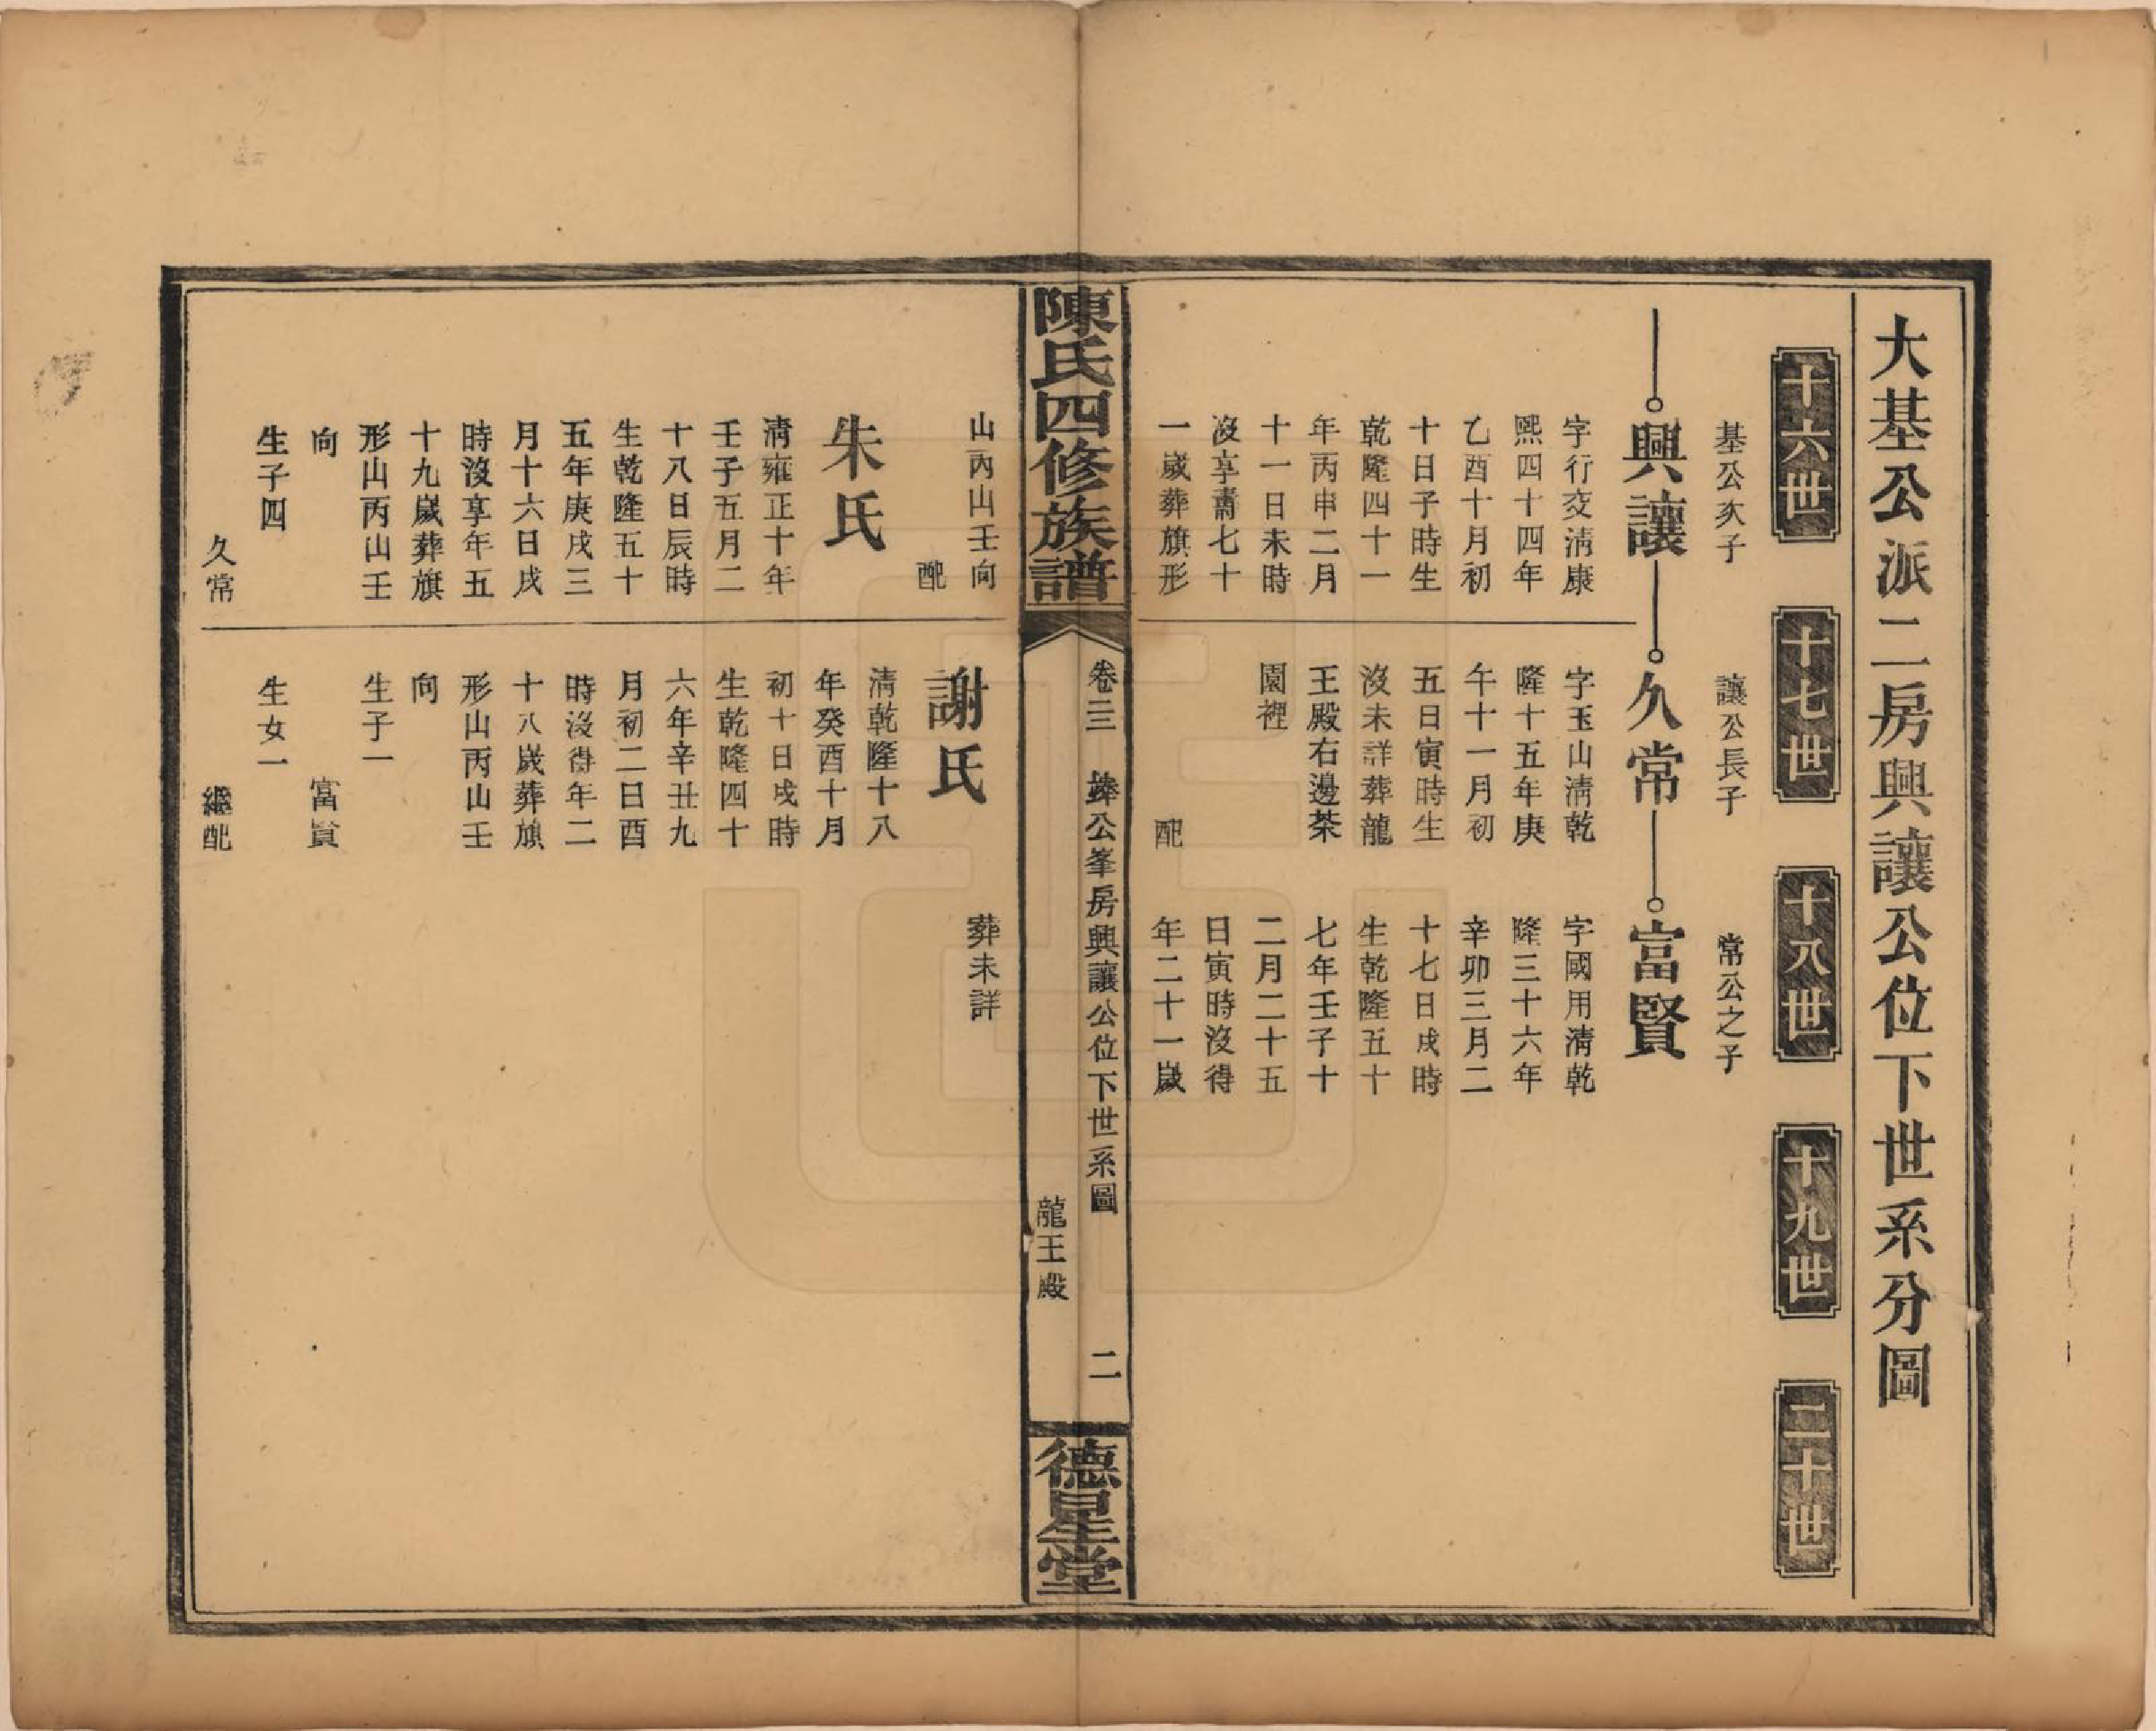 大基公派二房興讓公位下世系分圖
十六世
十七世
十八世
十九世
二十世
基公次子
興讓
字行交清康
熙四十四年
乙酉十月初
十日子時生
乾隆四十一
年丙申二月
十一日未時
沒享壽七十
一歲葬旗形
山丙山壬向
配
朱氏
清雍正十年
壬子五月二
十八日辰時
生乾隆五十
五年庚戌三
月十六日戌
時沒享年五
十九歲葬旗
形山丙山壬
向
生子四
久常
讓公長子
久常
字玉山清乾
隆十五年庚
午十一月初
五日寅時生
沒未詳葬龍
王殿右邊茶
園裡
配
謝氏
清乾隆十八
年癸酉十月
初十日戌時
生乾隆四十
六年辛丑九
月初二日酉
時沒得年二
十八歲葬旗
形山丙山壬
向
生子一
富賢
生女一
繼配
常公之子
富賢
字國用清乾
隆三十六年
辛卯三月二
十七日戌時
生乾隆五十
七年壬子十
二月二十五
日寅時沒得
年二十一歲
葬未詳
陳氏四修族譜
卷三
公峯房興讓公位下世系圖
龍王殿
二
德星堂